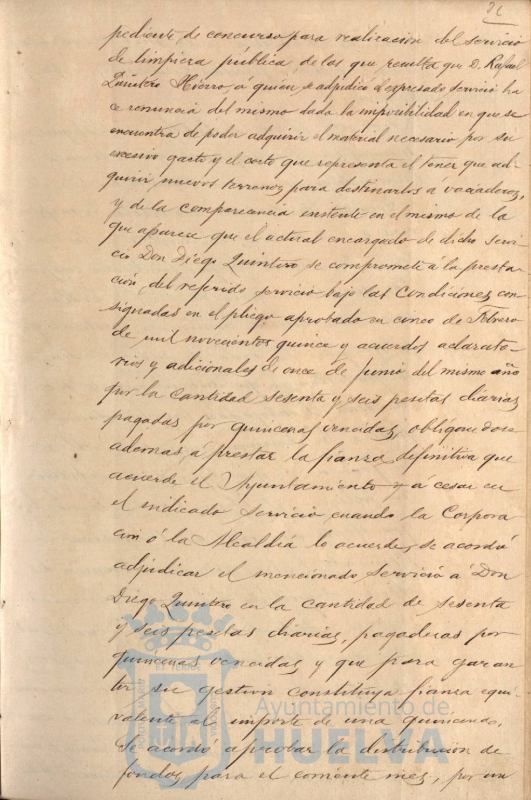 26
pediente de concurso para realizacion del servicio
de limpieza pública de los que resulta que D. Rafael
Quintero Hierro, á quien se adjudicó el expresado servicio ha
ce renuncia del mismo dada la imposibilidad en que se
encuentra de poder adquirir el material necesario por su
excesivo gasto y el costo que representa el tener que ad
quirir nuevos terrenos para destinarlos a vaciaderos,
y de la comparecencia existente en el mismo de la
que aparece que el actual encargado de dicho servi
cio Don Diego Quintero se compromete á la presta
ción del referido servicio bajo las condiciones con
signadas en el pliego aprobado en cinco de Febrero
de mil novecientos quince y acuerdos aclarato
rios y adicionales de once de Junio del mismo año
por la cantidad sesenta y seis pesetas diarias
pagadas por quincenas vencidas, obligandose
ademas á prestar la fianza definitiva que
acuerde el Ayuntamiento y á cesar en
el indicado servicio cuando la Corpora
cion ó la Alcaldia lo acuerde, se acordó
adjudicar el mencionado servicio á Don
Diego Quintero en la cantidad de sesenta
y seis pesetas diarias, pagaderas por
quincenas vencidas y que para garan
tir su gestion constituya fianza equi
valente al importe de una quincena.
Se acordó aprobar la distribucion de
fondos para el corriente mes, por un
Ayuntamiento de
HUELVA